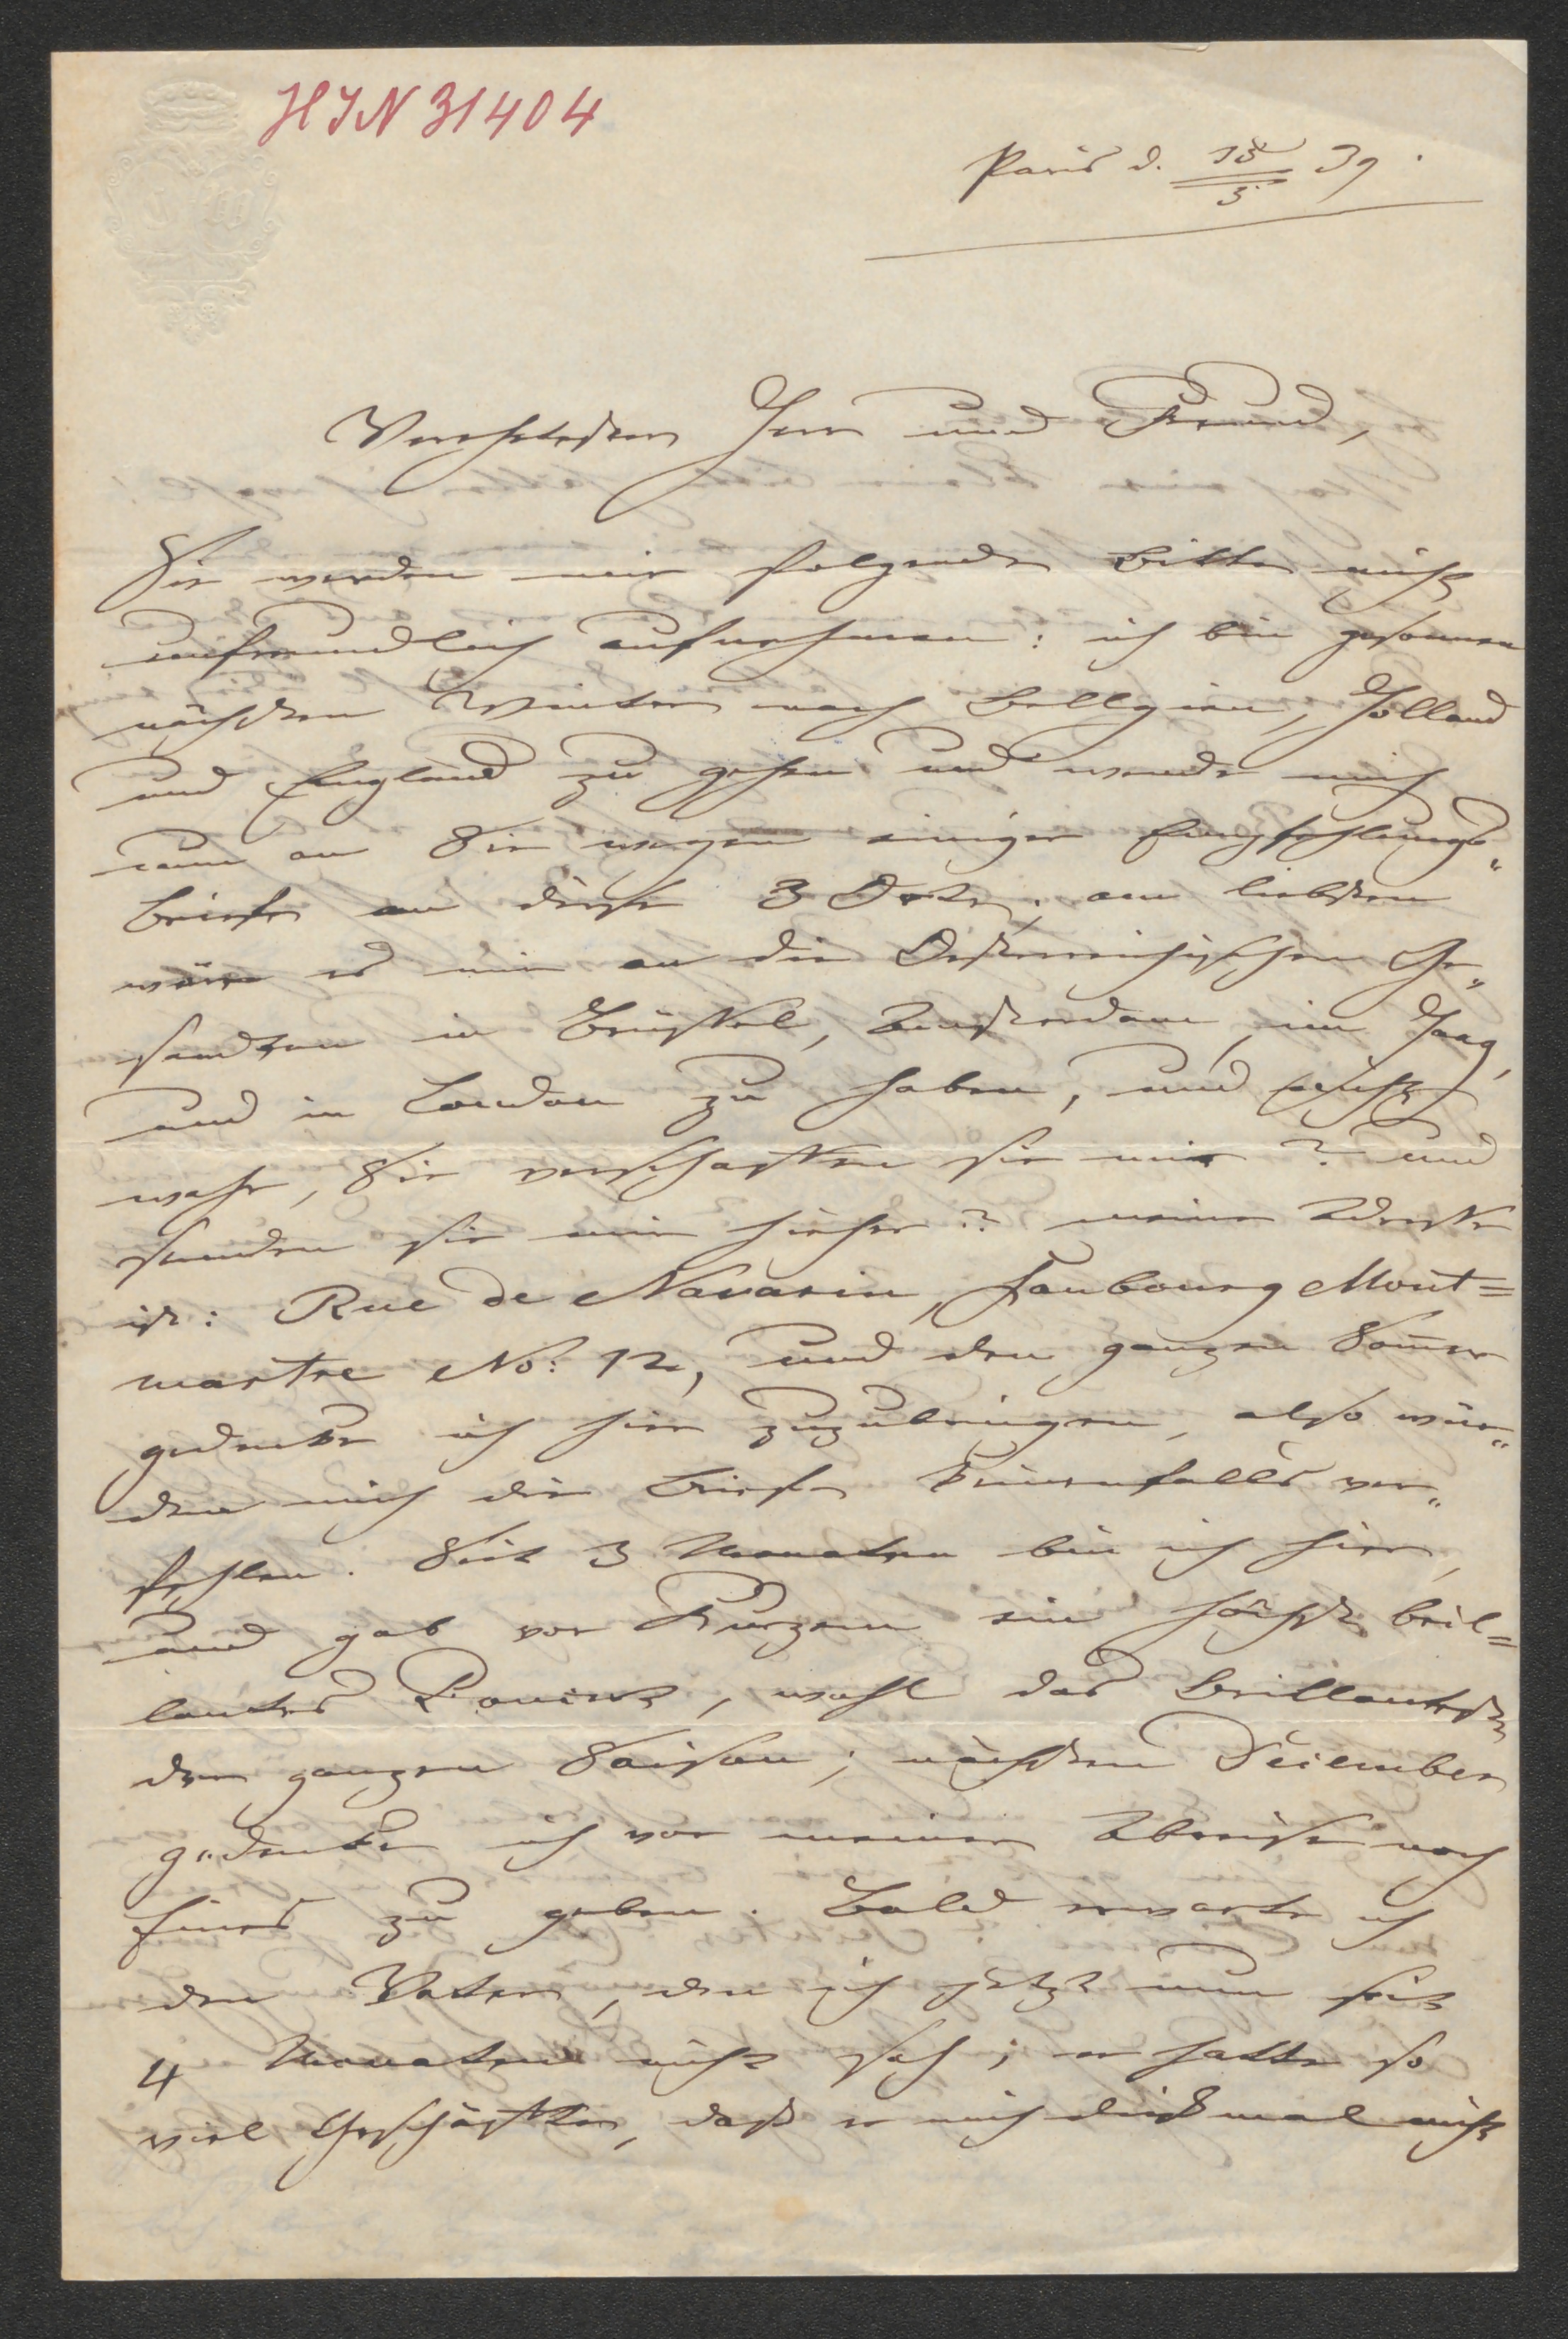 HIN 31404
Paris d. 15/5 39.
Verehrtester Herr und Freund,
Sie werden mir folgende Bitte nicht
unfreundlich aufnehmen: ich bin gesonnen
nächsten Winter nach Bellgien, Holland
und England zu gehen und wende mich
nun an Sie wegen einiger Empfehlungs„
briefe an diese 3 Orte; am liebsten
wäre es mir an die Oesterreichischen Ge„
sandten in Brüssel, Amsterdam, im Haag,
und in London zu haben, und nicht
wahr, Sie verschaffen sie mir? und
senden sie mir hieher? meine Adresse
ist: Rue de Navarin, Faubourg Mont=
martre No: 12, und den ganzen Som̄er
gedenke ich hier zuzubringen, also wür„
den mich die Briefe keinenfalls ver„
fehlen. Seit 3 Monaten bin ich hier,
und gab vor Kurzem ein höchst bril=
lantes Concert, wohl das brillanteste
der ganzen Saison; nächsten December
gedenke ich vor meiner Abreise noch
Eines zu geben. Bald erwarte ich
den Vater, den ich jetzt nun seit
4 Monaten nicht sah; er hatte so
viel Geschäfte, daß er mich dießmal nicht